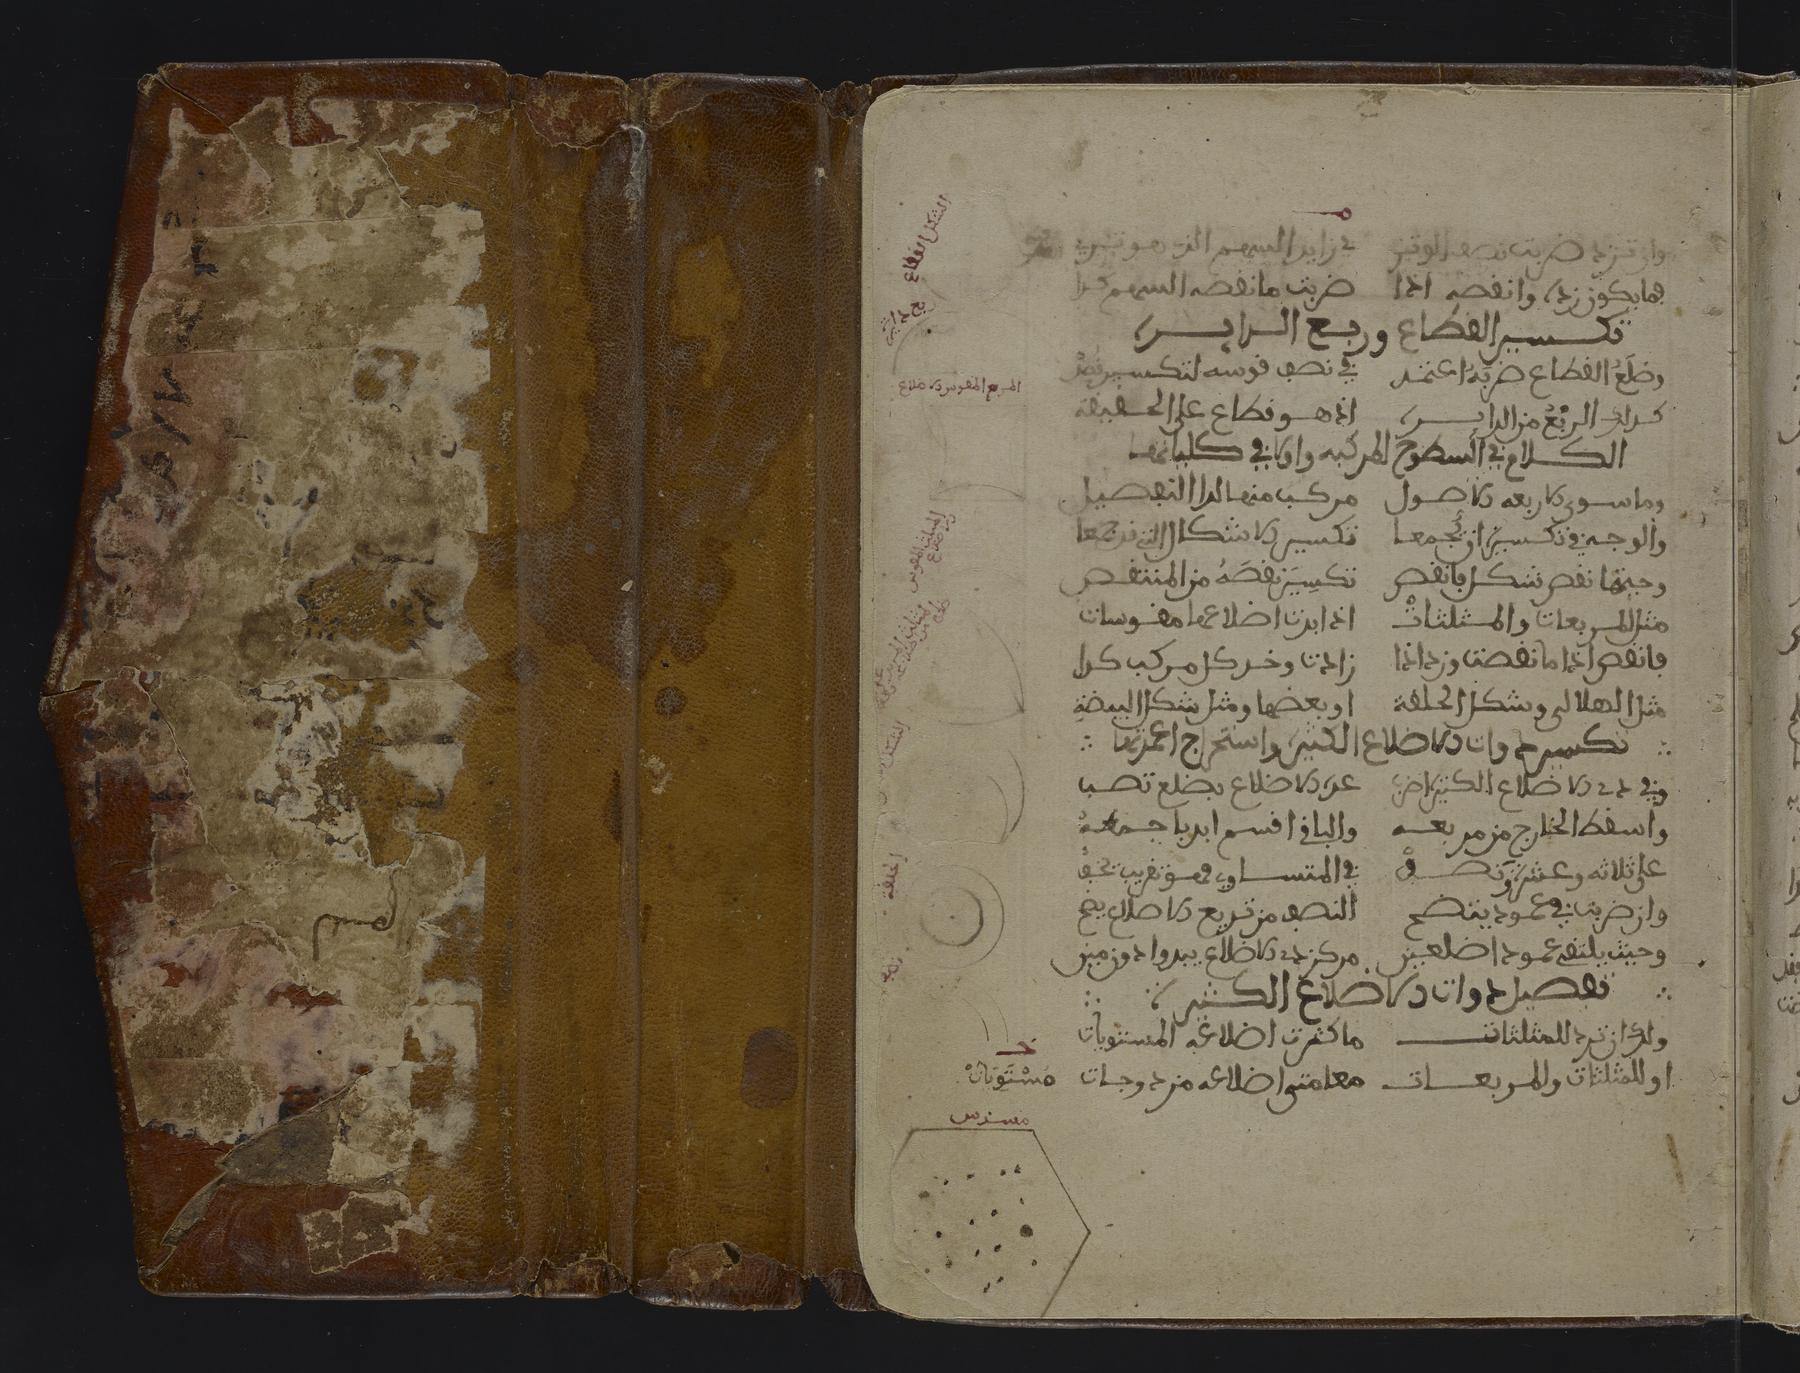 وان تزد ضربت نصف الوتر في زايد السهم الذي هو
فما يكون زد وانقصه اذا ضربت ما نقصه السهم كذا
تكسير القطاع وربع الدايرة
وضلع القطاع ضربه اعتمد في نصف قوسه لتكسير
كذلك الربع من الدايرة اذ هو قطاع على الحقيقة
الكلام في السطوح المركبة واولا في كلياتها
وما سوى الاربعة الاصول مركب منها لدا التفصيل
والوجه في تكسيره ان تجمعا تكسير الاشكال التي
وحيثما نقص شكل فانقص تكسير نقصه من المنتقص
مثل المربعات والمثلثات اذا بدت اضلاعها مقوسات
فانقص اذا ما نقصت وزد اذا زادت وخذ كل مركب كذا
مثل الهلالي وشكل الحلقة او بعضها ومثل شكل البيضة
تكسير ذوات الاضلاع الكثيرة واستخراج اعمدتها
وفي ذي الاضلاع الكثيرة اضرب عدة الاضلاع بضلع تصب
واسقط الخارج من مربعه والباقي اقسم ابدا يا
على ثلاثة وعشر في المتساوي فهو تقريب
وان ضربت في عمود يتضح النصف من توزيع الاضلاع يصح
وحيث يلتقي عمودا ضلعين مركز ذي الاضلاع يبدوا دون مين
تفصيل ذوات الاضلاع الكثيرة
ولك ان ترد للمثلثات ما كثرت اضلاعه المستويات
او للمثلثات والمربعات معا متى اضلاعه مزدوجات
مستويات
الشكل القطاع
ربع دايرة
المربع المقوس الاضلاع
الحلقة
مسدس